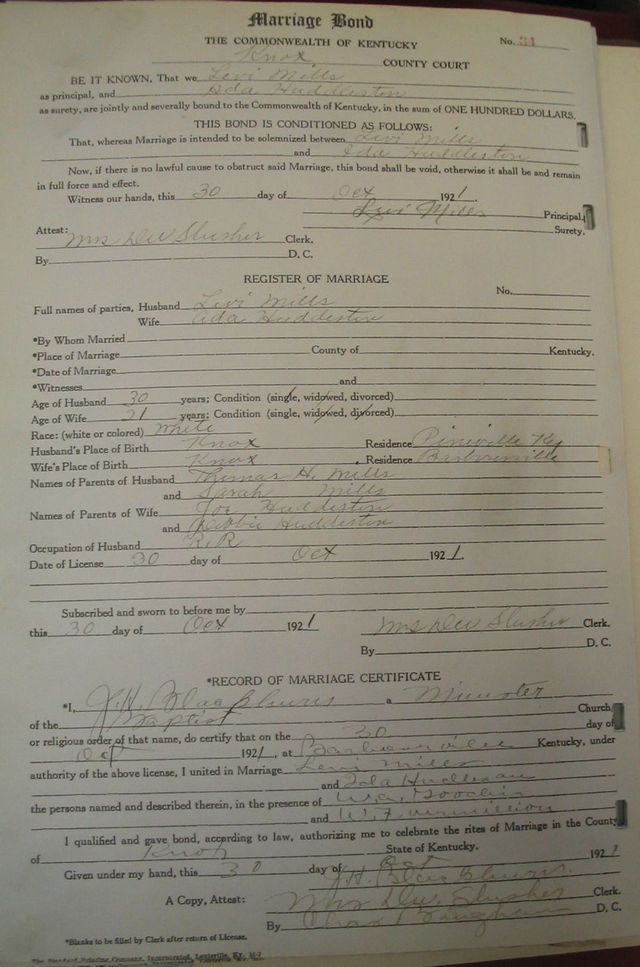 Marriage Bond
THE COMMONWEALTH OF KENTUCKY No. 34
Knox COUNTY COURT
BE IT KNOWN, That we Levi Mills
as principal, and Ada Huddleston
as surety, are jointly and severally bound to the Commonwealth of Kentucky, in the sum of ONE HUNDRED DOLLARS.
THIS BOND IS CONDITIONED AS FOLLOWS:
That, whereas Marriage is intended to be solemnized between Levi Mills
and Ada Huddleston
Now, if there is no lawful cause to obstruct said Marriage, this bond shall be void, otherwise it shall be and remain
in full force and effect.
Witness our hands, this 30 day of Oct 1921.
Levi Mills Principal.
Surety.
Attest: Mrs Dw Slusher Clerk.
By D. C.
REGISTER OF MARRIAGE
No.
Full names of parties, Husband Levi Mills
Wife Ada Huddleston
*By Whom Married
*Place of Marriage County of Kentucky.
*Date of Marriage
*Witnesses and
Age of Husband 30 years; Condition (single, widowed, divorced)
Age of Wife 21 years; Condition (single, widowed, divorced)
Race: (white or colored) White
Husband's Place of Birth Knox Residence Pineville Ky
Wife's Place of Birth Knox Residence Barbourville
Names of Parents of Husband Thomas H. Mills
and Sarah Mills
Names of Parents of Wife Joe Huddleston
and Debbie Huddleston
Occupation of Husband R.R
Date of License 30 day of Oct 1921.
Subscribed and sworn to before me by
this 30 day of Oct 1921 Mrs Dw Slusher Clerk.
By D. C.
*RECORD OF MARRIAGE CERTIFICATE
*I, J.H. Blackburn a Minister
of the Baptist Church,
or religious order of that name, do certify that on the 30 day of
Oct 1921, at Barbourville Kentucky, under
authority of the above license, I united in Marriage Levi Mills
and
the persons named and described therein, in the presence of
and W.F. Vermillion
I qualified and gave bond, according to law, authorizing me to celebrate the rites of Marriage in the County
of Knox State of Kentucky.
Given under my hand, this 30 day of Oct 1921
J.H. Blackburn.
A Copy, Attest: Mrs Dw. Slusher Clerk.
By D. C.
*Blanks to be filled by Clerk after return of License.
The Standard Printing Company, Incorporated, Louisville, Ky.